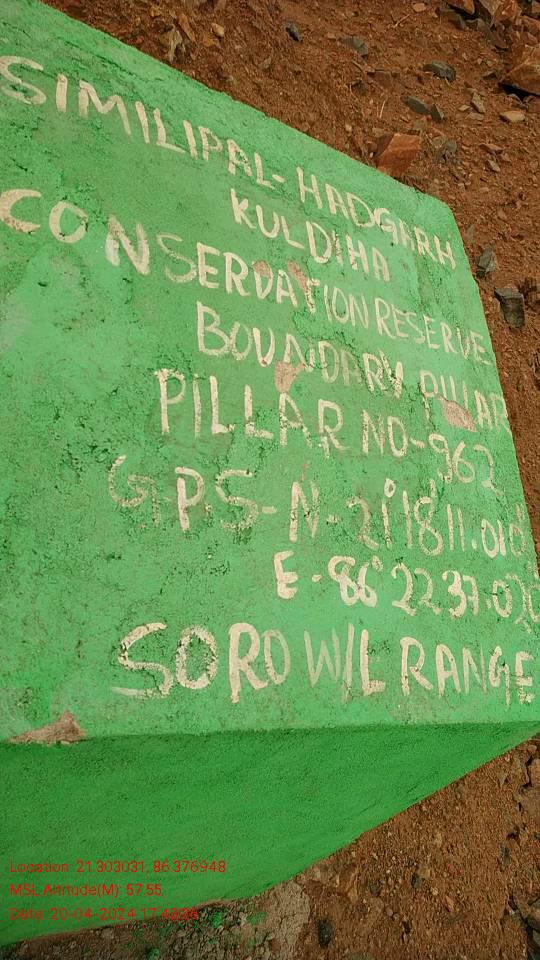 SIMILIPAL-HADGARH
KULDIHA
CONSERVATION RESERVE
BOUNDARY PILLAR
PILLAR NO-962
GPS-N-21°18'11.010
E-86°22'37.020
SORO W/L RANGE
Location: 21.303031, 86.376948
MSL Altitude(M): 57.55
Date: 20-04-2024